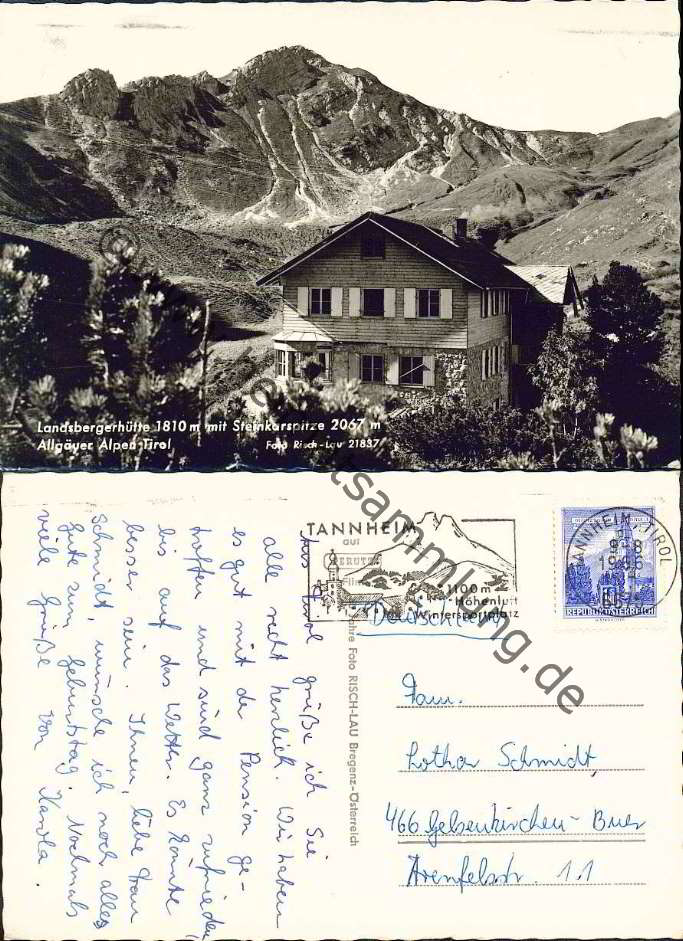 Landsbergerhütte 1810 m mit Steinkarspitze 2067 m
Allgäuer Alpen Tirol
Foto Risch-Lau 21837
TANNHEIM
auf
1100m
Höhenluft
Wintersportplatz
TANNHEIM, TIROL
REPUBLIK ÖSTERREICH
Jahre Foto RISCH-LAU Bregenz-Österreich
Aus Tirol grüße ich Sie
alle recht herzlich. Wir haben
es gut mit der Pension ge-
troffen und sind ganz zufrieden,
bis auf das Wetter. Es könnte
besser sein. Ihnen, liebe Frau
Schmidt, wünsche ich noch alles
Gute zum Geburtstag. Nochmals
viele Grüße von Karola.
Fam.
Lothar Schmidt,
466 Gelsenkirchen-Buer
Arenfelsstr. 11
ansichtskartensammlung.de